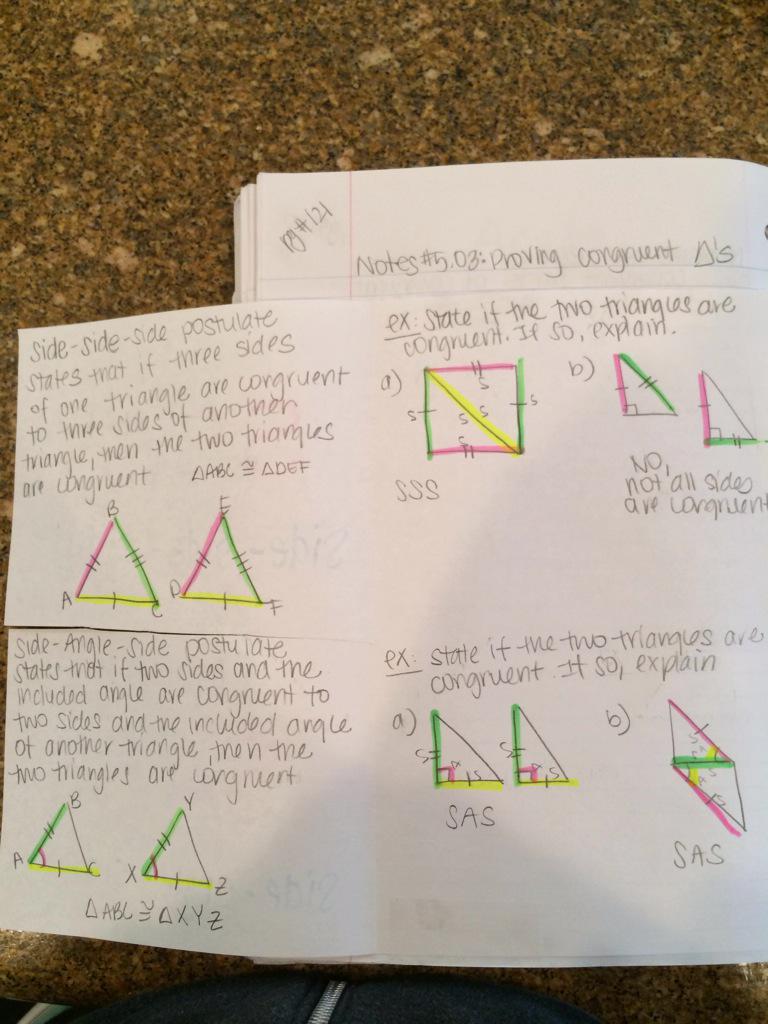 pg#121
Notes#5.03: Proving congruent Δ's
side-side-side postulate
states that if three sides
of one triangle are congruent
to three sides of another
triangle, then the two triangles
are congruent
ΔABC ≅ ΔDEF
B
A
C
E
D
F
ex: state if the two triangles are
congruent. If so, explain.
a)
s
s
s
s
s
s
SSS
b)
NO,
not all sides
are congruent
Side-Angle-side postulate
states that if two sides and the
included angle are congruent to
two sides and the included angle
of another triangle, then the
two triangles are congruent
B
A
C
Y
X
Z
ΔABC ≅ ΔXYZ
ex: state if the two triangles are
congruent. If so, explain
a)
S
A
S
S
A
S
SAS
b)
SAS